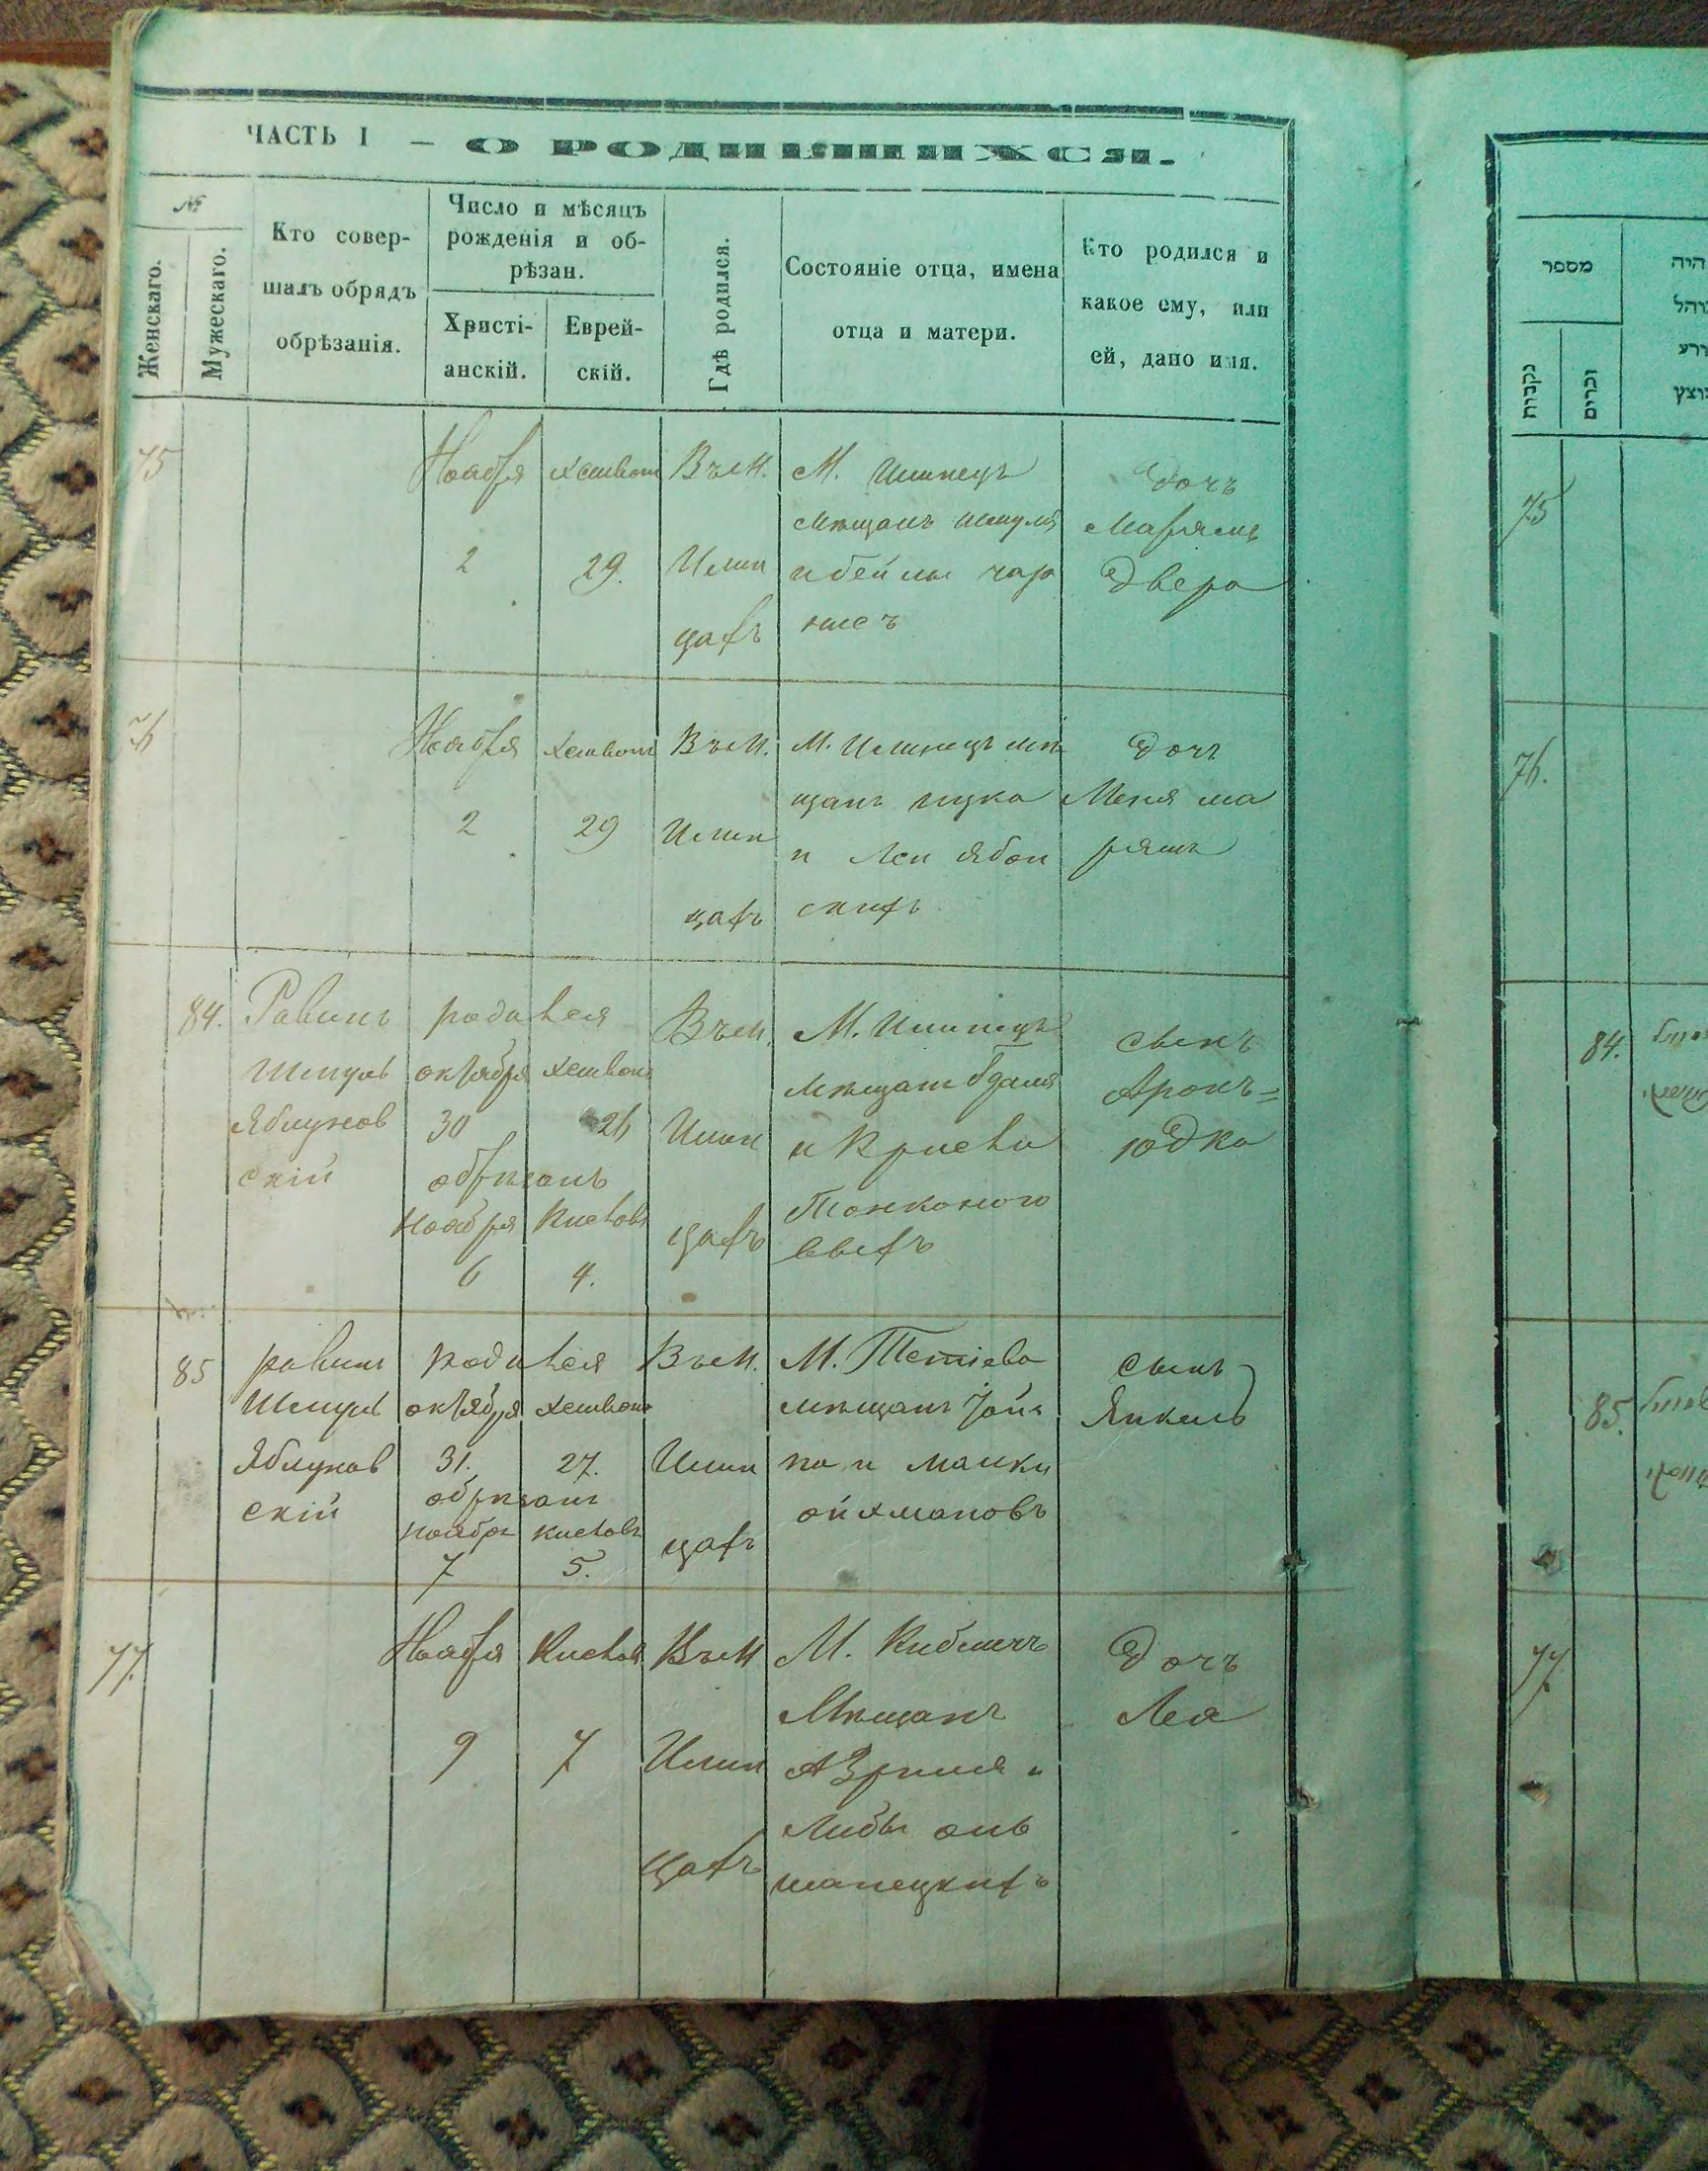 ЧАСТЬ I — О РОДИВШИХСЯ.
№
Женскаго.
Мужескаго.
Кто совер-
шалъ обрядъ
обрѣзанія.
Число и мѣсяцъ
рожденія и об-
рѣзан.
Христі-
анскій.
Еврей-
скій.
Гдѣ родился.
Состояніе отца, имена
отца и матери.
Кто родился и
какое ему, или
ей, дано имя.
75
Ноября
2
Хешвон
29.
Въ М.
Илин
цахъ
М. Илинецъ
мѣщанъ Шмуля
и бейлы
Дочъ
Марямъ
Двера
76
Ноября
2
Хешвон
29
Въ М.
Илин
цахъ
М. Илинецъ мѣ
щанъ ицка
и Леи
скихъ
Дочъ
Меня ма
рямъ
84.
Равинъ
Шмуль
Яблунов
скій
родился
октября
30
обрѣзанъ
Ноября
6
Хешвон
26
Кислов
4.
Въ М.
Илин
цахъ
М. Илинецъ
мѣщанъ
и Крислы
Тонконого
выхъ
сынъ
Аронъ=
юдко
85
равинъ
Шмуль
Яблунов
скій
родился
октября
31.
обрѣзанъ
ноября
7
Хешвон
27.
кислов
5.
Въ М.
Илин
цахъ
М. Тетіева
мѣщанъ Іой
на и Малки
ойхмановъ
сынъ
Янкель
77.
Ноября
9
Кислов
7
Въ М
Илин
цахъ
М.
Мѣщанъ
Азриля и
Либы оль
шанецкихъ
Дочъ
Лея
מספר
נקבות
זכרים
היה
75
76.
84.
85.
77